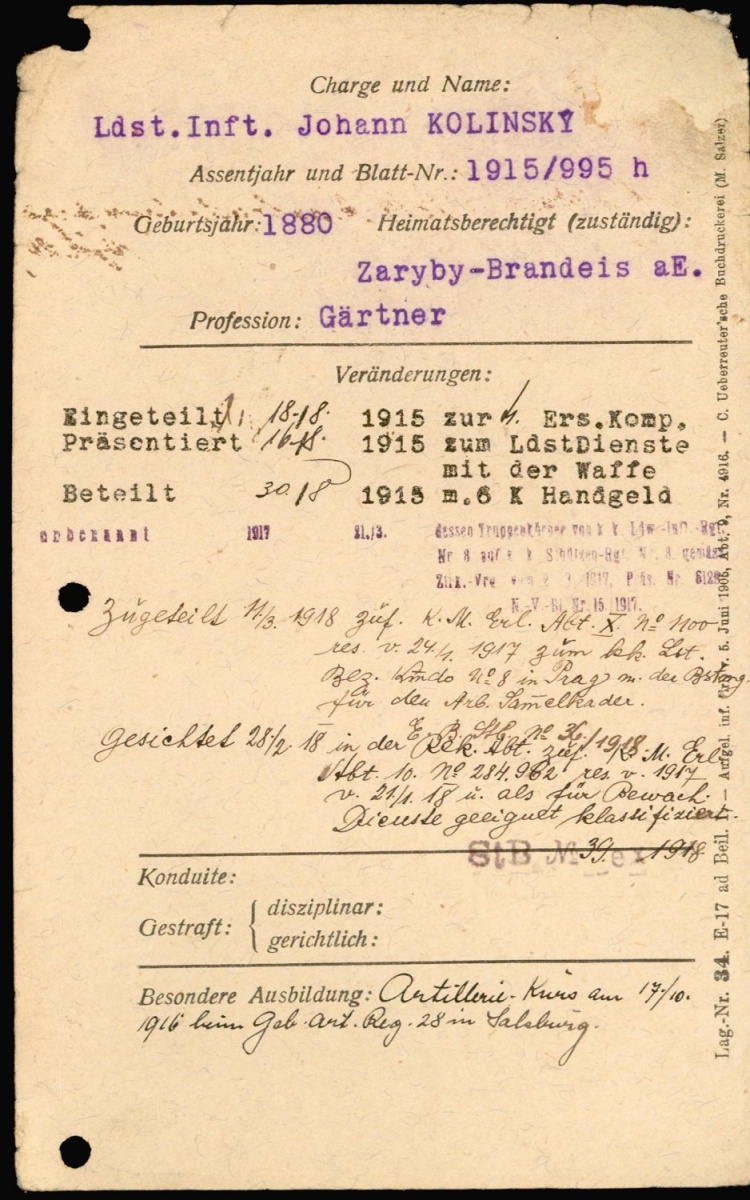 Charge und Name:
Ldst.Inft. Johann KOLINSKY
Assentjahr und Blatt-Nr.: 1915/995 h
Geburtsjahr: 1880 Heimatsberechtigt (zuständig):
Zaryby-Brandeis aE.
Profession: Gärtner
Veränderungen:
Eingeteilt 18./8. 1915 zur 4. Ers.Komp.
Präsentiert 16./8. 1915 zum LdstDienste
mit der Waffe
Beteilt 30./8 1915 m.6 K Handgeld
1917 21./3. dessen Truppenkörper von k k Ldw.-Inft.-Rgt
Nr 8 auf k k Schützen-Rgt Nr 8 gemäß
1917, Präs. Nr. 6128
N.-V.-Bl. Nr. 15/1917.
Zugeteilt 11/3. 1918 zuf. K. M. Erl. Abt. X. Nº 1100
res. v. 24/1. 1917 zum kk. Lst.
Bez. Kmdo Nº 8 in Prag m. der Bstmg.
für den Arb. Sam̅elkader.
Gesichtet 28/2. 18 in der E. B. Stb. Nº 36/1918
Rek. Abt. zuf. K. M. Erl.
Abt. 10. Nº 284.962 res. v. 1917
v. 21/1. 18 u. als für Bewach.
Dienste geeignet klassifiziert.
StB 39 1918
Konduite:
Gestraft: { disziplinar:
gerichtlich:
Besondere Ausbildung: Artillerie-Kurs am 17/10.
1916 beim Geb. Art. Reg. 28 in Salzburg.
Lag.-Nr. 34. E-17 ad Beil. — Aufgel. inf. 5. Juni 1906, Abt. 9, Nr. 4916. — C. Ueberreuter'sche Buchdruckerei (M. Salzer)